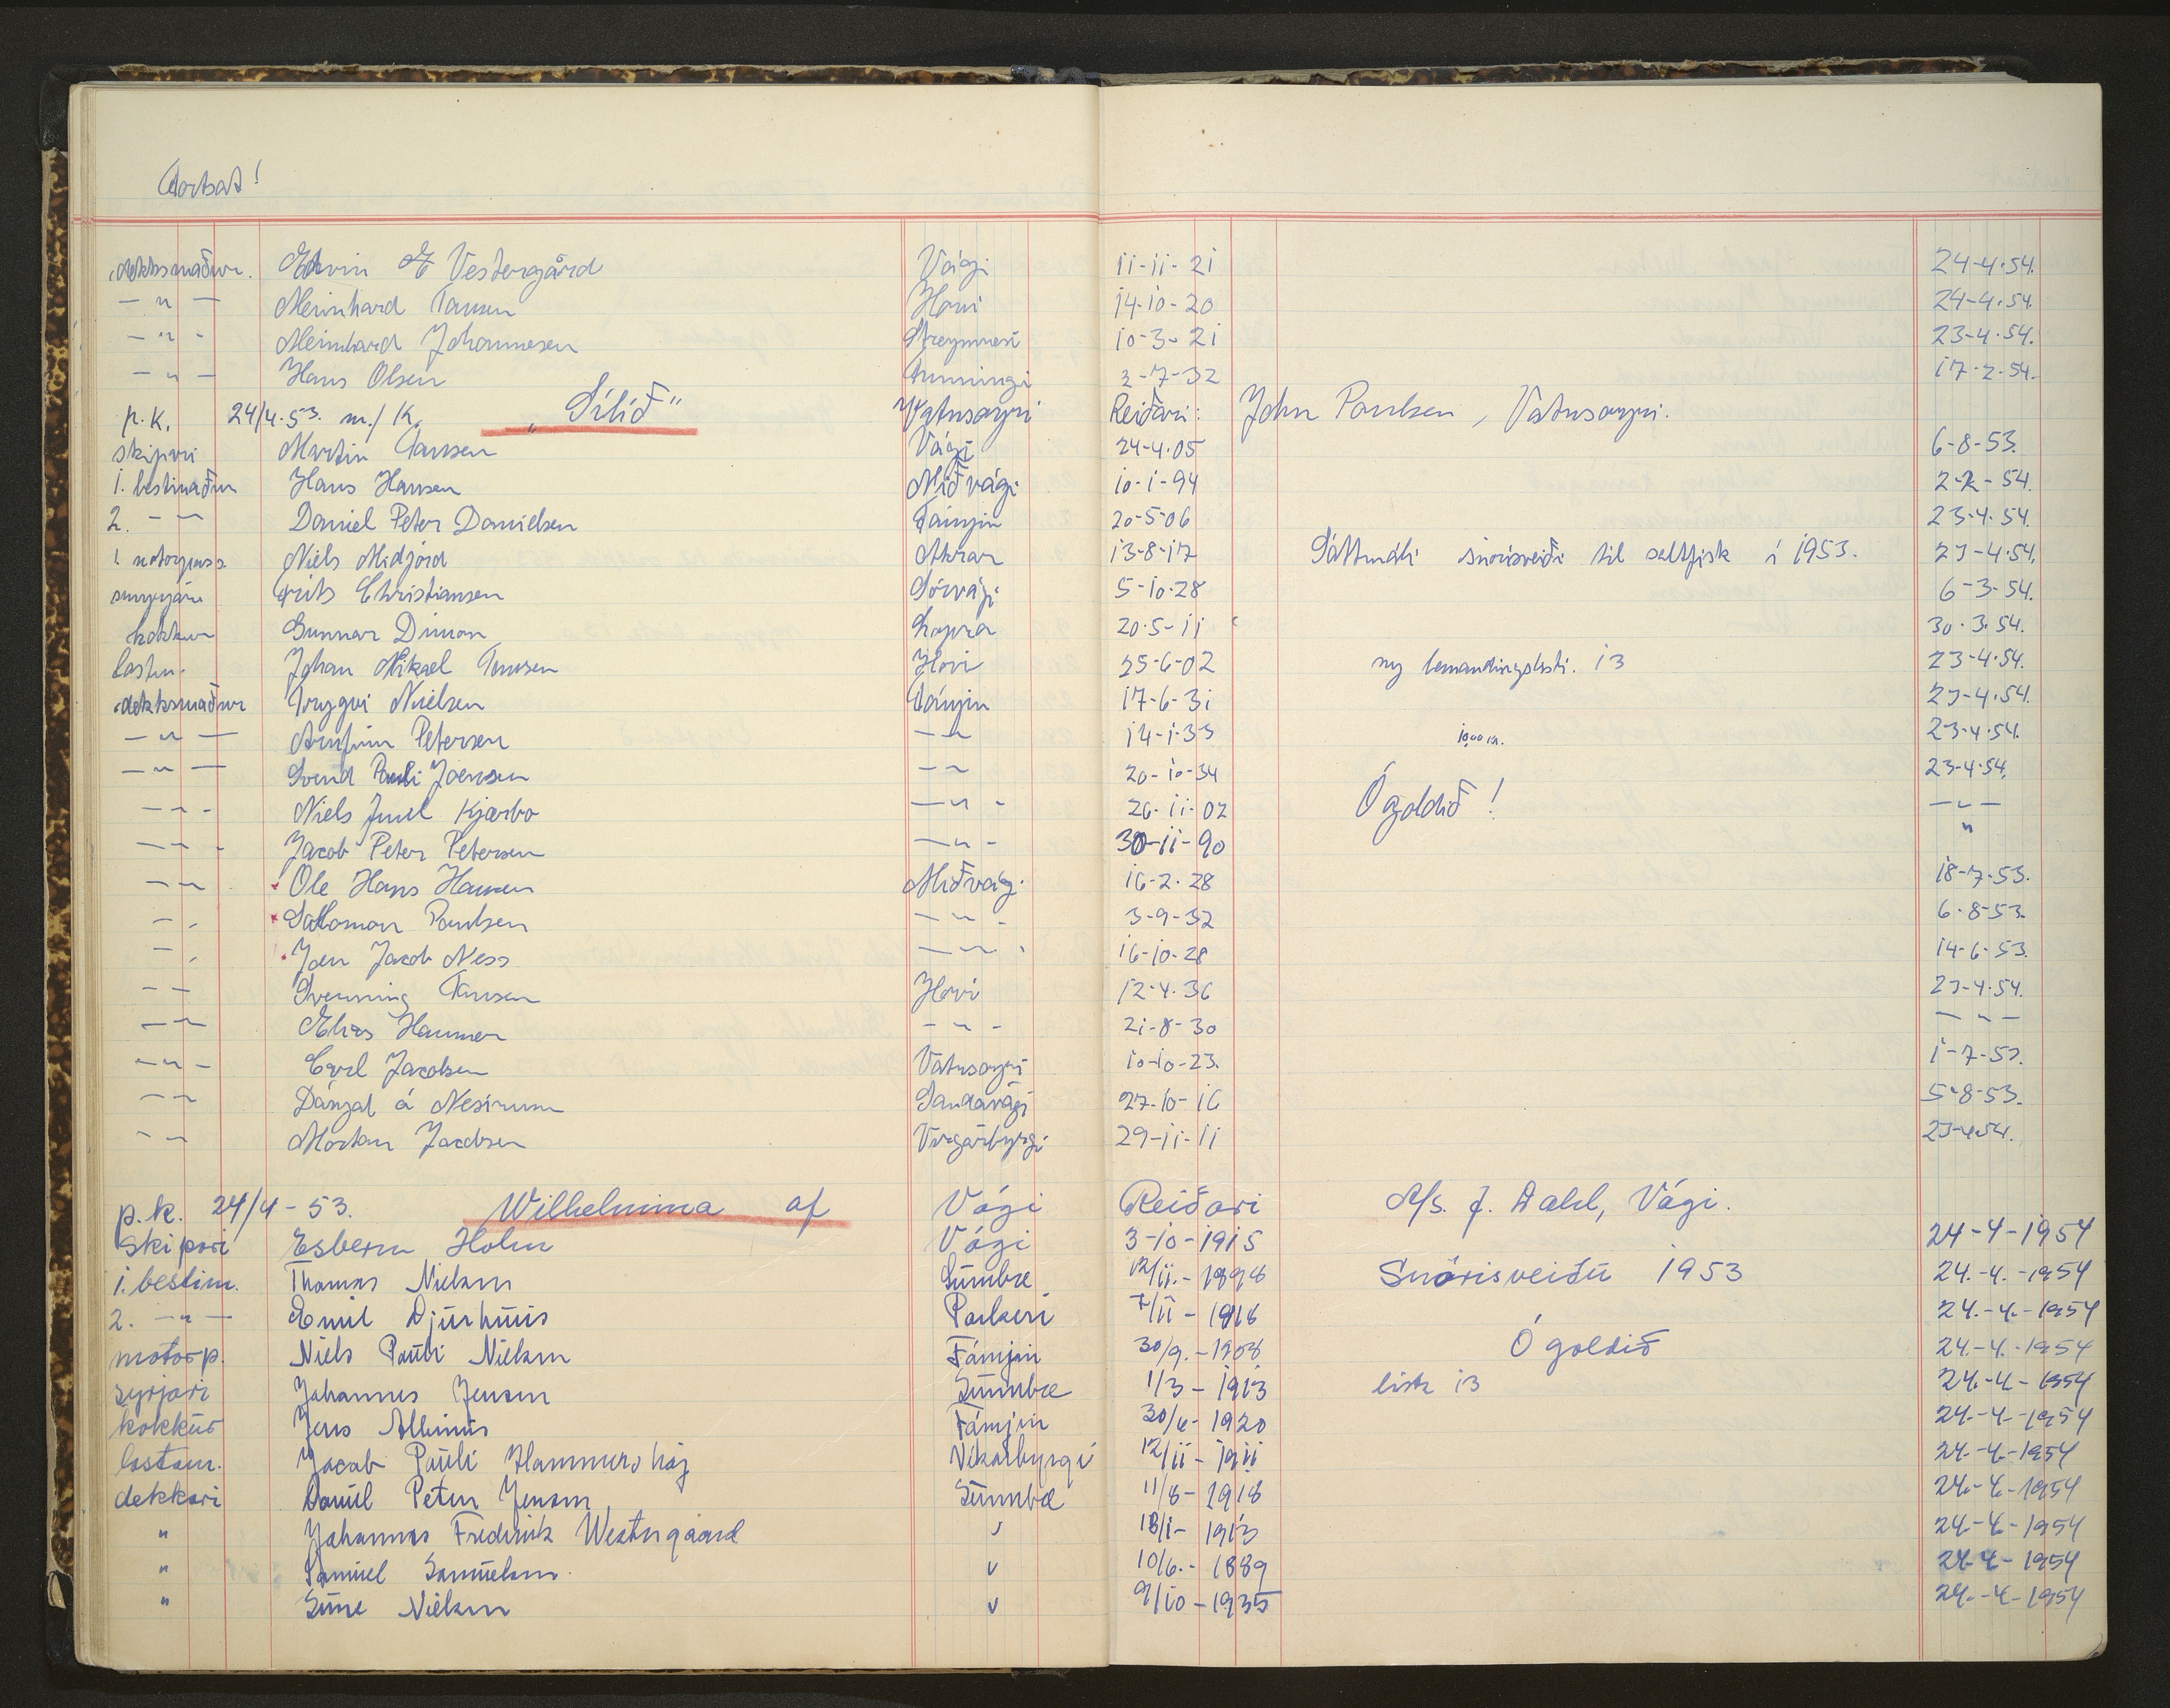 Fortsat!
dekksmaður. Edvin E Vestergård Vági 11-11-21 24-4-54.
— " — Meinhard Tausen Hovi 14-10-20 24-4-54.
— " - Meinhard Johannesen Streymnesi 10-3-21 23-4-54.
— " — Hans Olsen Funningi 2-7-32 17-2-54.
p.k. 24/4-53. m/k. „Stíð" Vatnsoyri Reiðari: John Poulsen, Vatnsoyri.
skipari Martin Tausen Vági 24-4-05 6-8-53.
1. bestimaður Hans Hansen Miðvági 10-1-94 2-2-54.
2. — " — Daniel Peter Danielsen Fámjin 20-5-06 23-4-54.
1. motorpass Niels Midjord Akrar 13-8-17 Sáttmáli snørisveiði til saltfisk í 1953. 23-4-54.
smyrjari Frits Christiansen Sørvági 5-10-28 6-3-54.
kokkur Gunnar Dimon Lopra 20-5-11 30-3-54.
lastm. Johan Mikael Tausen Hovi 25-6-02 ny bemandingslisti. 13 23-4-54.
dekksmaður Tryggvi Nielsen Fámjin 17-6-31 23-4-54.
— " — Arnfinn Petersen — " — 14-1-33 10,00 kr. 23-4-54.
— " — Svend Pauli Joensen — " — 20-10-34 23-4-54.
— " - Niels Juul Kjærbo — " - 26-11-02 Ógoldið! — " —
— " - Jacob Peter Petersen — " - 30-11-90 "
— " Ole Hans Hansen Miðvági 16-2-28 18-7-53.
— " Salomon Poulsen — " - 3-9-32 6-8-53.
— " Jen Jacob Ness — " - 16-10-28 14-6-53.
— " Svenning Tausen Hovi 12-4-36 23-4-54.
— " Elias Hammer — " - 21-8-30 — " —
— " - Carl Jacobsen Vatnsoyri 10-10-23. 1-7-53.
— " Dánjal á Nesinum Sandavági 27-10-16 5-8-53.
— " Mortan Jacobsen Vágarbyrgi 29-11-11 23-4-54.
p.k. 24/4-53. Wilhelmina af Vági Reiðari A/s. J. Dahl, Vági.
Skipari Esbern Holm Vági 3-10-1915 24-4-1954
1. bestim. Thomas Nielsen Sumbæ 12/11.-1898 Snørisveiðu 1953 24.-4.-1954
2. — " — Emil Djurhuus Porkeri 7/11-1918 24.-4.-1954
motorp. Niels Pauli Nielsen Fámjin 30/9.-1908 Ógoldið 24.-4.-1954
syrjari Johannes Jensen Sumbæ 1/3-1913 listi 13 24.-4-1954
kokkur Jens Albinus Fámjin 30/6-1920 24.-4.-1954
lastam. Jacob Pauli Hammershøj Nikarbyrgi 12/11-1911 24.-4.-1954
dekkari Daniel Peter Jensen Sumbæ 11/8-1918 24.-4.-1954
" Johannes Frederik Westergaard " 18/1-1913 24.-4-1954
" Samuel Samuelsen. " 10/6.-1889 24-4-1954
" Sune Nielsen " 9/10-1935 24.-4-1954